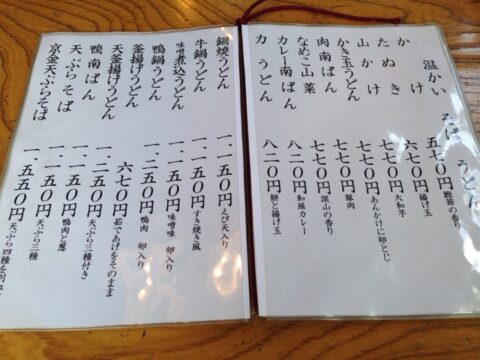 温かい そば うどん
かけ 五七〇円 鰹節の香り
たぬき 六七〇円 揚げ玉
山かけ 七七〇円 大和芋
かき玉うどん 七七〇円 あんかけに卵とじ
肉南ばん 七七〇円 豚肉
なめこ山菜 七七〇円 深山の香り
カレー南ばん 八二〇円 和風カレー
力うどん 八二〇円 餅と揚げ玉
鍋焼うどん 一、一五〇円 えび天入り
牛鍋うどん 一、一五〇円 すき焼き風
味噌煮込うどん 一、一五〇円 味噌味 卵入り
鴨鍋うどん 一、二五〇円 鴨肉 卵入り
釜揚げうどん 六七〇円 茹であげをそのまま
天釜揚げうどん 一、二五〇円 天ぷら三種付き
鴨南ばん 一、一五〇円 鴨肉と葱
天ぷらそば 一、一五〇円 天ぷら三種
京金天ぷらそば 一、五五〇円 天ぷら四種を